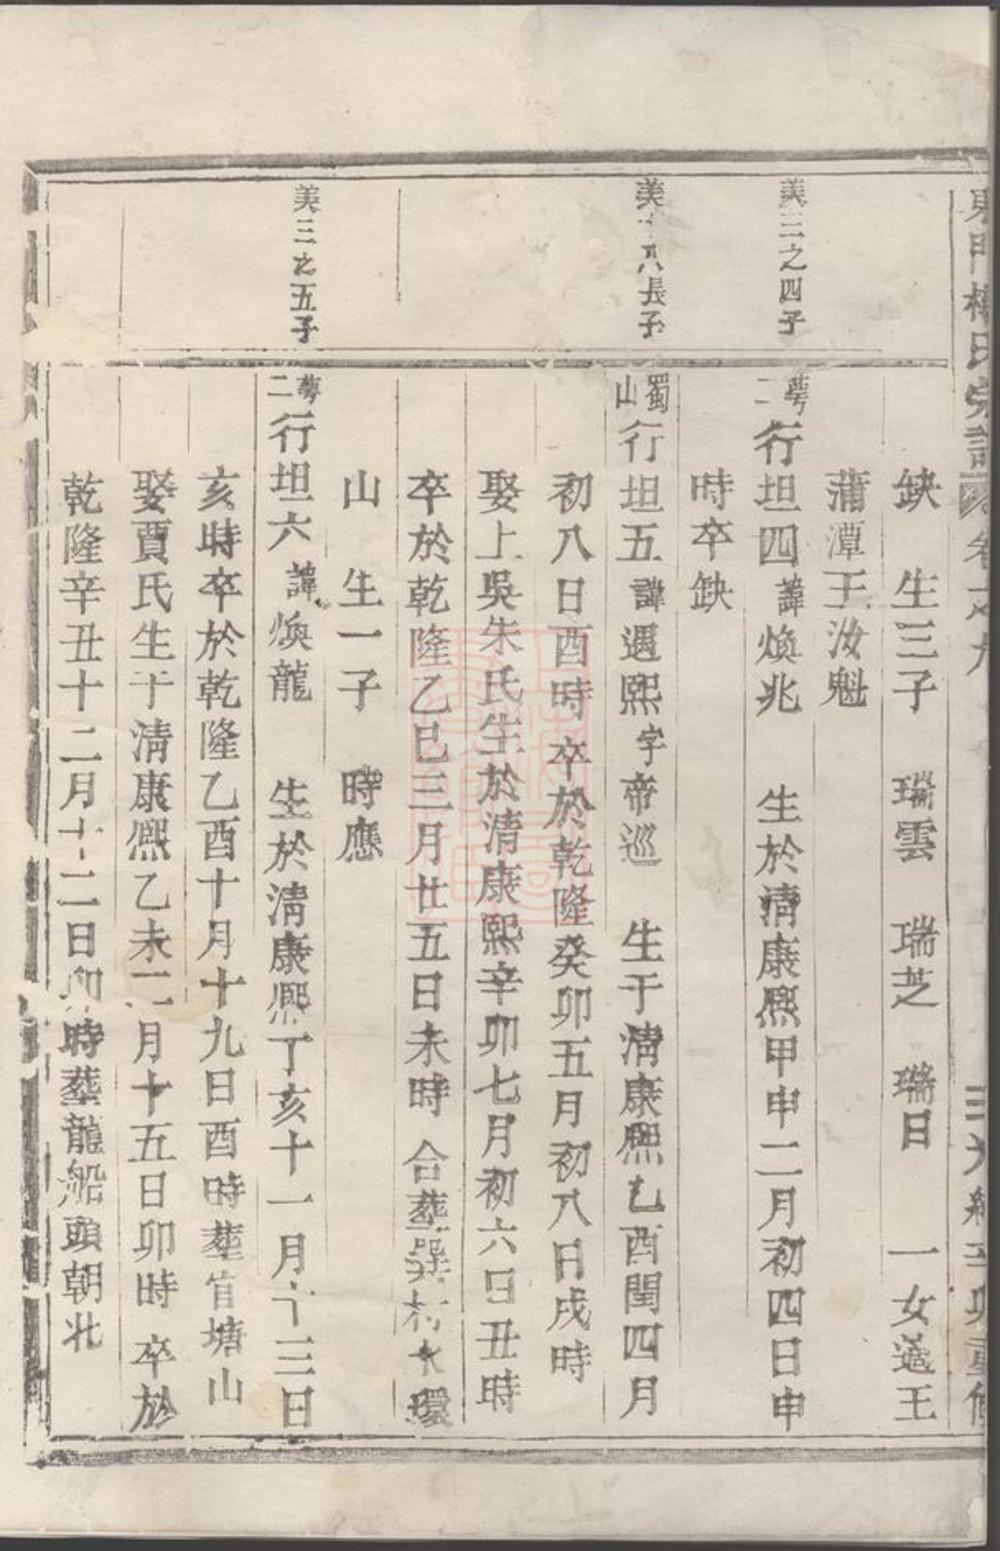 梅氏宗譜 卷之九
缺 生三子 瑞雲 瑞芝 瑞日 一女適王
蒲潭王汝魁
美三之四子
二 行坦四 諱煥兆 生於清康熙甲申二月初四日申
時卒缺
美 八長子
蜀山 行坦五 諱遇熙 字帝巡 生于清康熙乙酉閏四月
初八日酉時 卒於乾隆癸卯五月初八日戌時
娶上吳朱氏生於清康熙辛卯七月初六日丑時
卒於乾隆乙巳三月廿五日未時 合葬 村水環
山 生一子 時應
美三之五子
二 行坦六 諱煥龍 生於清康熙丁亥十一月十三日
亥時卒於乾隆乙酉十月十九日酉時葬官塘山
娶賈氏生于清康熙乙未二月十五日卯時 卒於
乾隆辛丑十二月十二日卯時葬龍船頭朝北